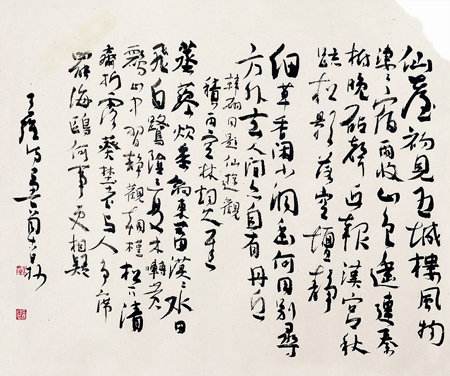 仙臺初見五城樓風物
凄凄宿雨收山色遥連秦
樹晚砧聲近報漢宮秋
疏松影落空壇静
细草香闲小洞幽何用别尋
方外去人間亦自有丹丘
韓翃同題仙遊觀
積雨空林烟火遲
蒸藜炊黍餉東菑漠漠水田
飛白鷺陰陰夏木囀黄
鸝山中習静觀朝槿松下清
齋折露葵野老与人争席
罷海鷗何事更相疑